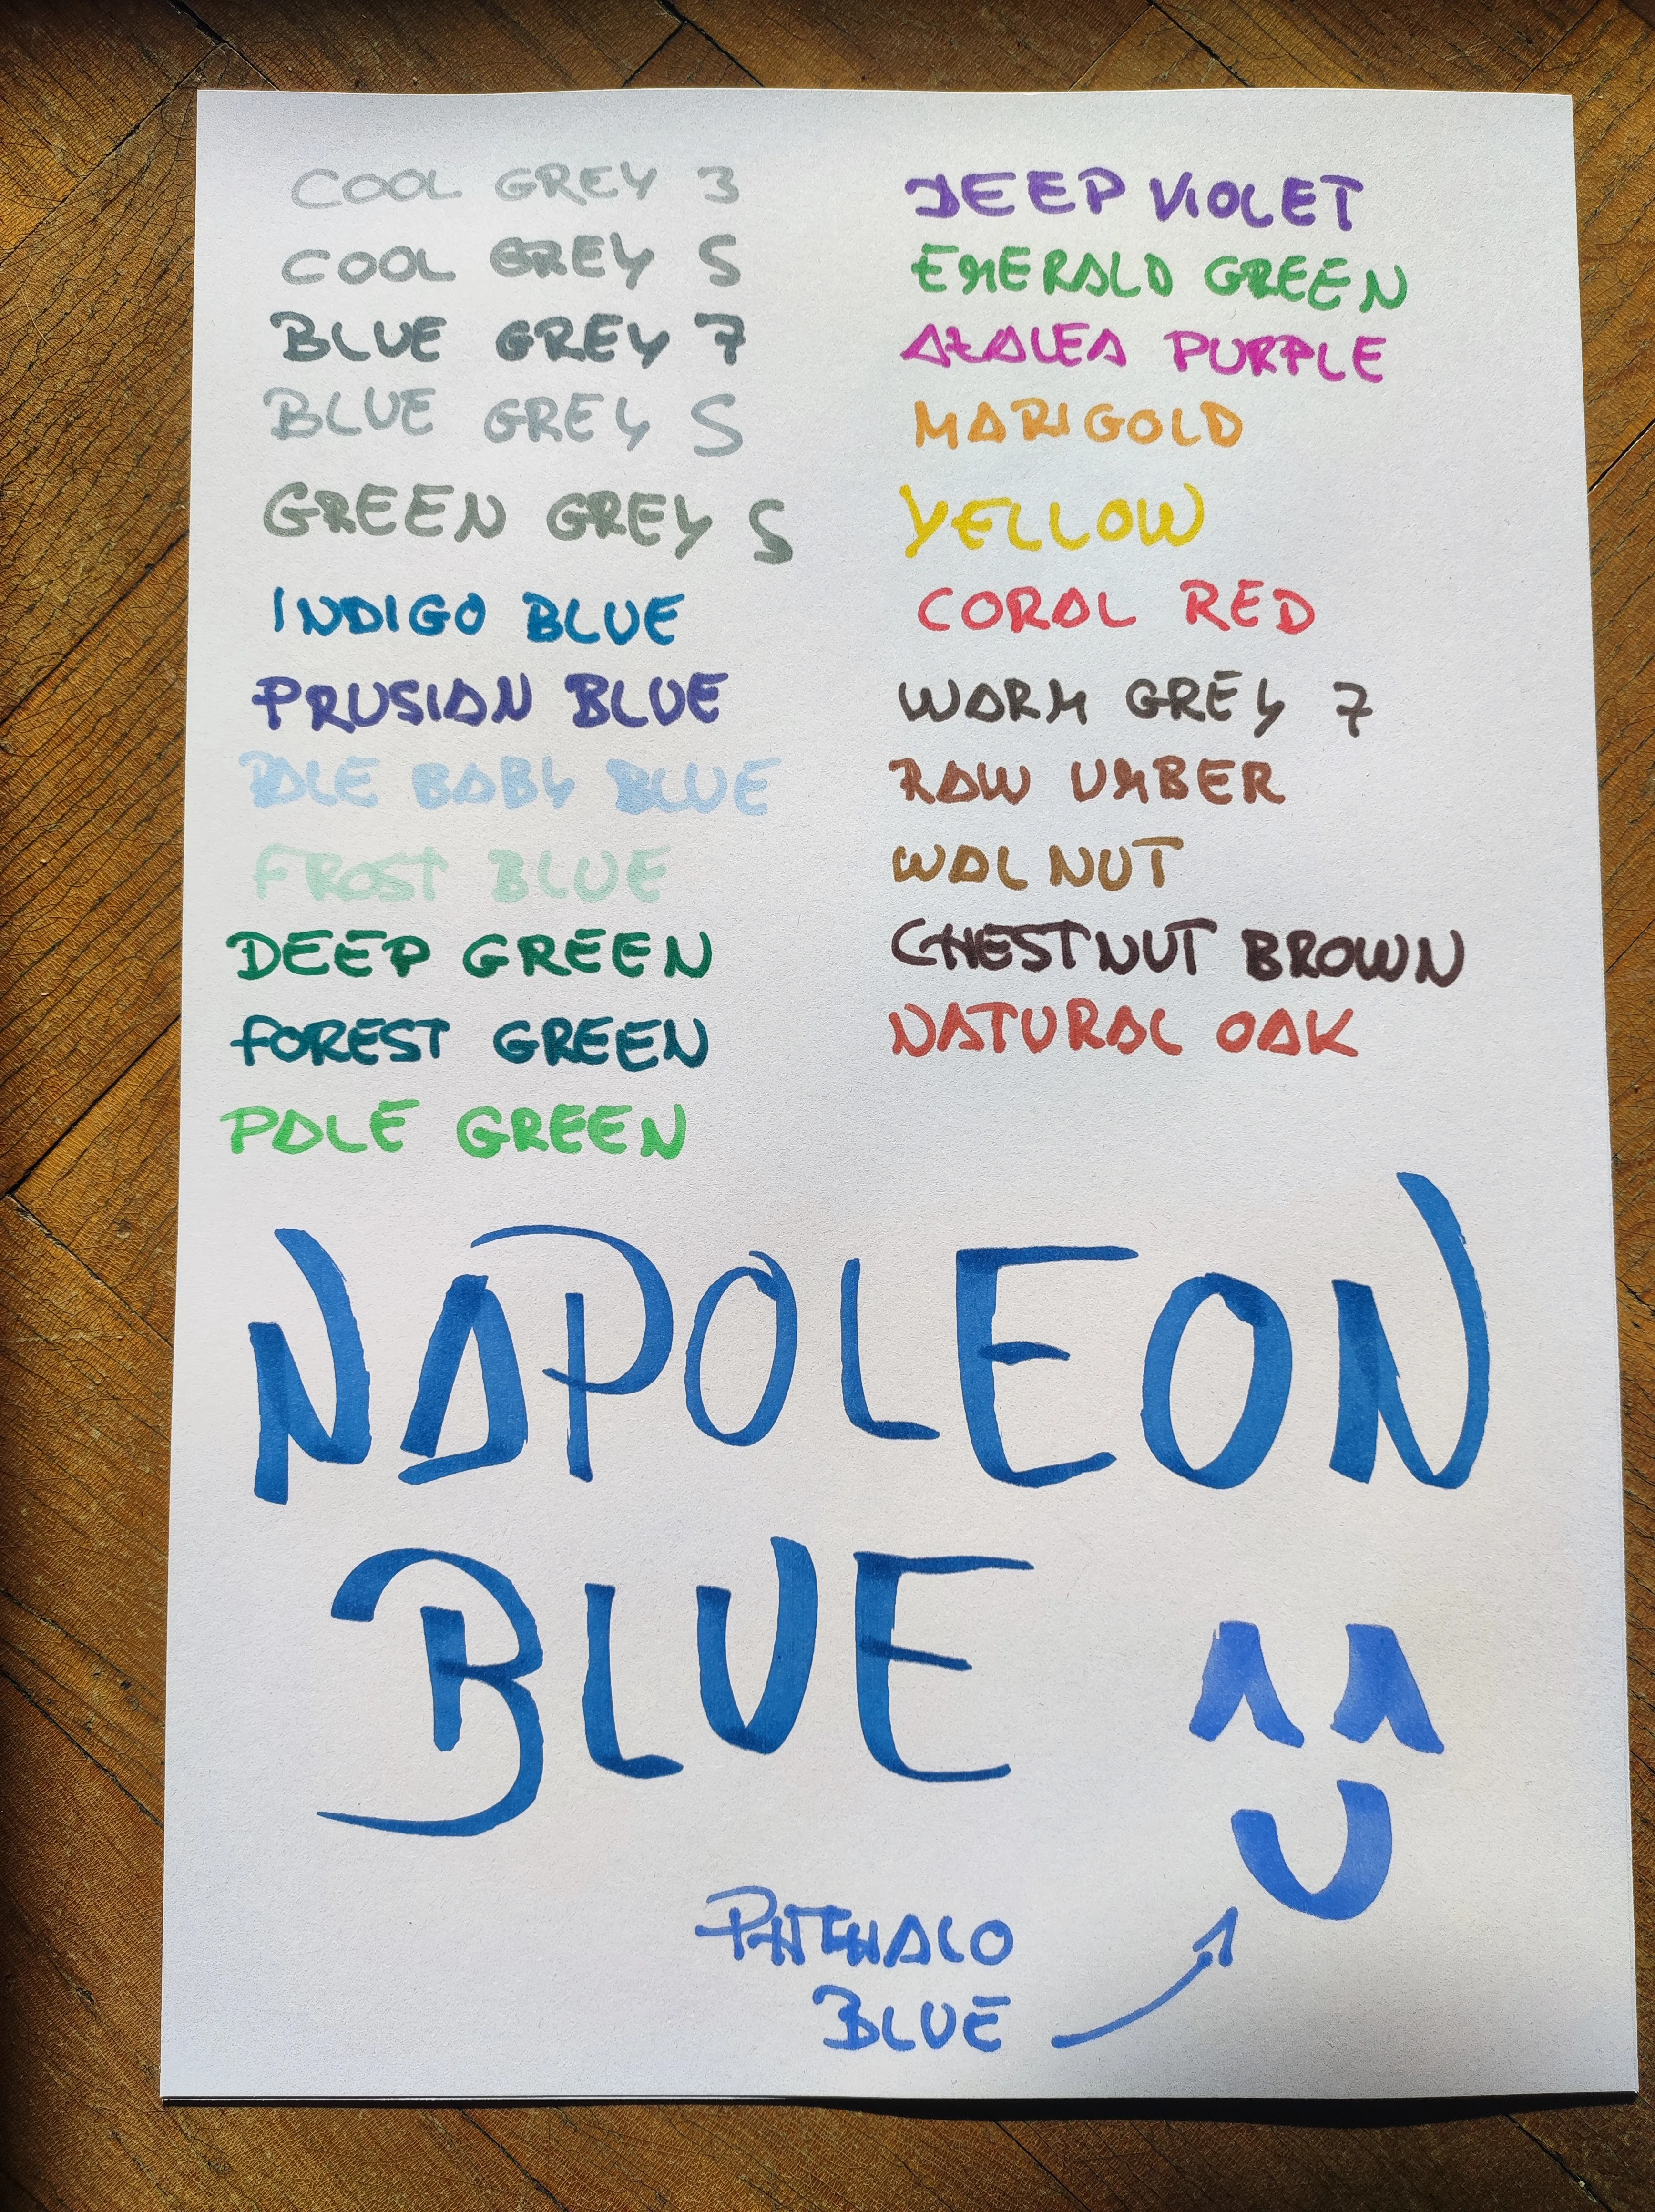 COOL GREY 3
COOL GREY 5
BLUE GREY 7
BLUE GREY 5
GREEN GREY 5
INDIGO BLUE
PRUSIAN BLUE
PALE BABY BLUE
FROST BLUE
DEEP GREEN
FOREST GREEN
PALE GREEN
DEEP VIOLET
EMERALD GREEN
AZALEA PURPLE
MARIGOLD
YELLOW
CORAL RED
WARM GREY 7
RAW UMBER
WALNUT
CHESTNUT BROWN
NATURAL OAK
NAPOLEON
BLUE
PHTHALO
BLUE